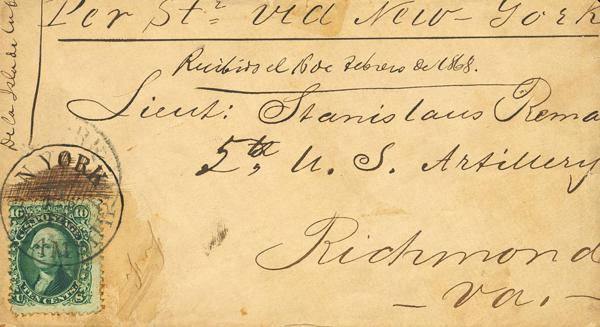 Per Str via New-York
Recibido el 16 de Febrero de 1868.
Lieut: Stanislaus Rema
5th, U. S. Artillery
Richmond
- Va. -
De la Isla de Cub
N YORK
10 10
U.S. POSTAGE
TEN CENTS
U S